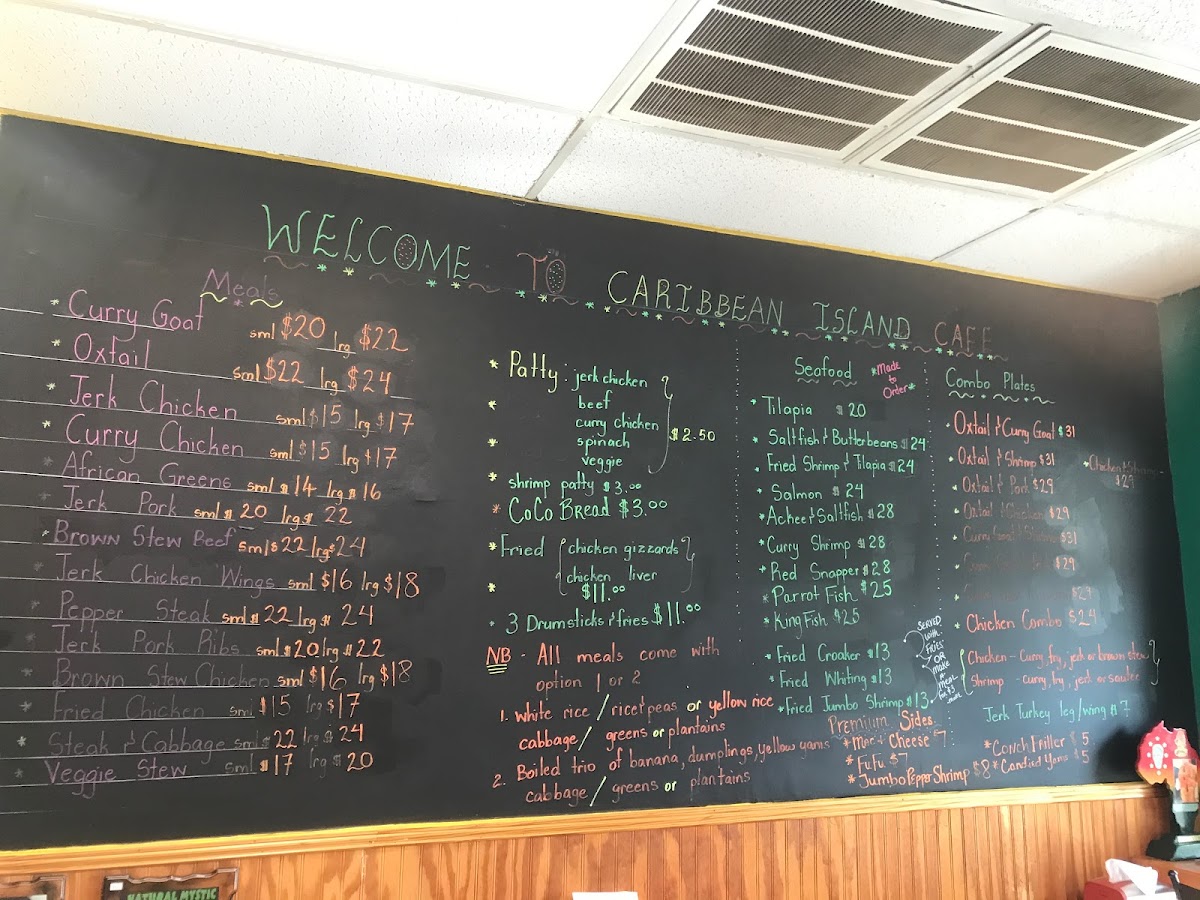 WELCOME TO CARIBBEAN ISLAND CAFE
Meals
* Curry Goat sml $20 lrg $22
* Oxtail sml $22 lrg $24
* Jerk Chicken sml $15 lrg $17
* Curry Chicken sml $15 lrg $17
* African Greens sml $14 lrg $16
* Jerk Pork sml $20 lrg $22
* Brown Stew Beef sml $22 lrg $24
* Jerk Chicken Wings sml $16 lrg $18
* Pepper Steak sml $22 lrg $24
* Jerk Pork Ribs sml $20 lrg $22
* Brown Stew Chicken sml $16 lrg $18
* Fried Chicken sml $15 lrg $17
* Steak & Cabbage sml $22 lrg $24
* Veggie Stew sml $17 lrg $20
* Patty: jerk chicken
* beef
curry chicken $2.50
* spinach
veggie
* shrimp patty $3.00
* CoCo Bread $3.00
* Fried chicken gizzards
chicken liver
* $11.00
* 3 Drumsticks & fries $11.00
NB - All meals come with
option 1 or 2
1. white rice / rice & peas or yellow rice
cabbage / greens or plantains
2. Boiled trio of banana, dumplings, yellow yams
cabbage / greens or plantains
Seafood
*Made
to
Order*
* Tilapia $20
* Saltfish & Butterbeans $24
* Fried Shrimp & Tilapia $24
* Salmon $24
* Ackee & Saltfish $28
* Curry Shrimp $28
* Red Snapper $28
* Parrot Fish $25
* King Fish $25
* Fried Croaker $13
* Fried Whiting $13
* Fried Jumbo Shrimp $13
SERVED
with
FRIES
OR
make
a
meal
for $3
more
Premium Sides
* Mac & Cheese $7
* FuFu $7
* Jumbo Pepper Shrimp $8
Combo Plates
* Oxtail & Curry Goat $31
* Oxtail & Shrimp $31
* Oxtail & Pork $29
* Oxtail & Chicken $29
$31
$29
$29
* Chicken Combo $24
* Chicken & Shrimp
$29
Chicken - Curry, fry, jerk or brown stew
Shrimp - curry, fry, jerk or sautee
Jerk Turkey leg/wing $7
* Conch Fritter $5
* Candied Yams $5
NATURAL MYSTIC